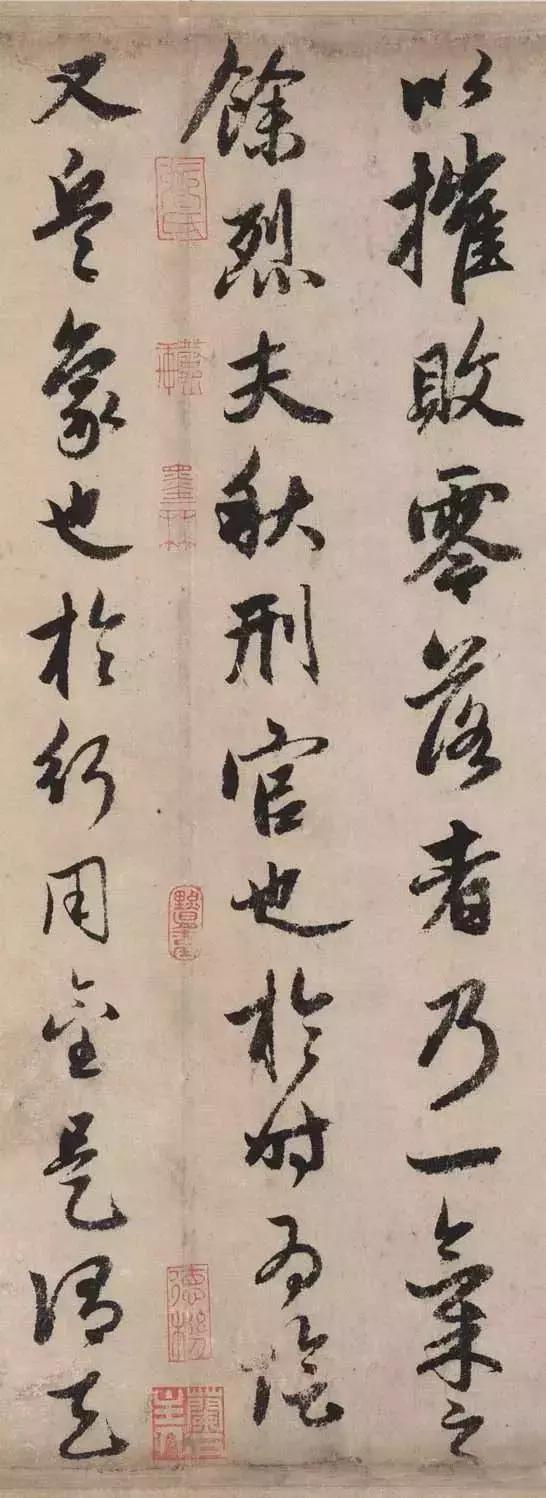 以摧敗零落者乃一氣之
餘烈夫秋刑官也於時為陰
又兵象也於行用金是謂天